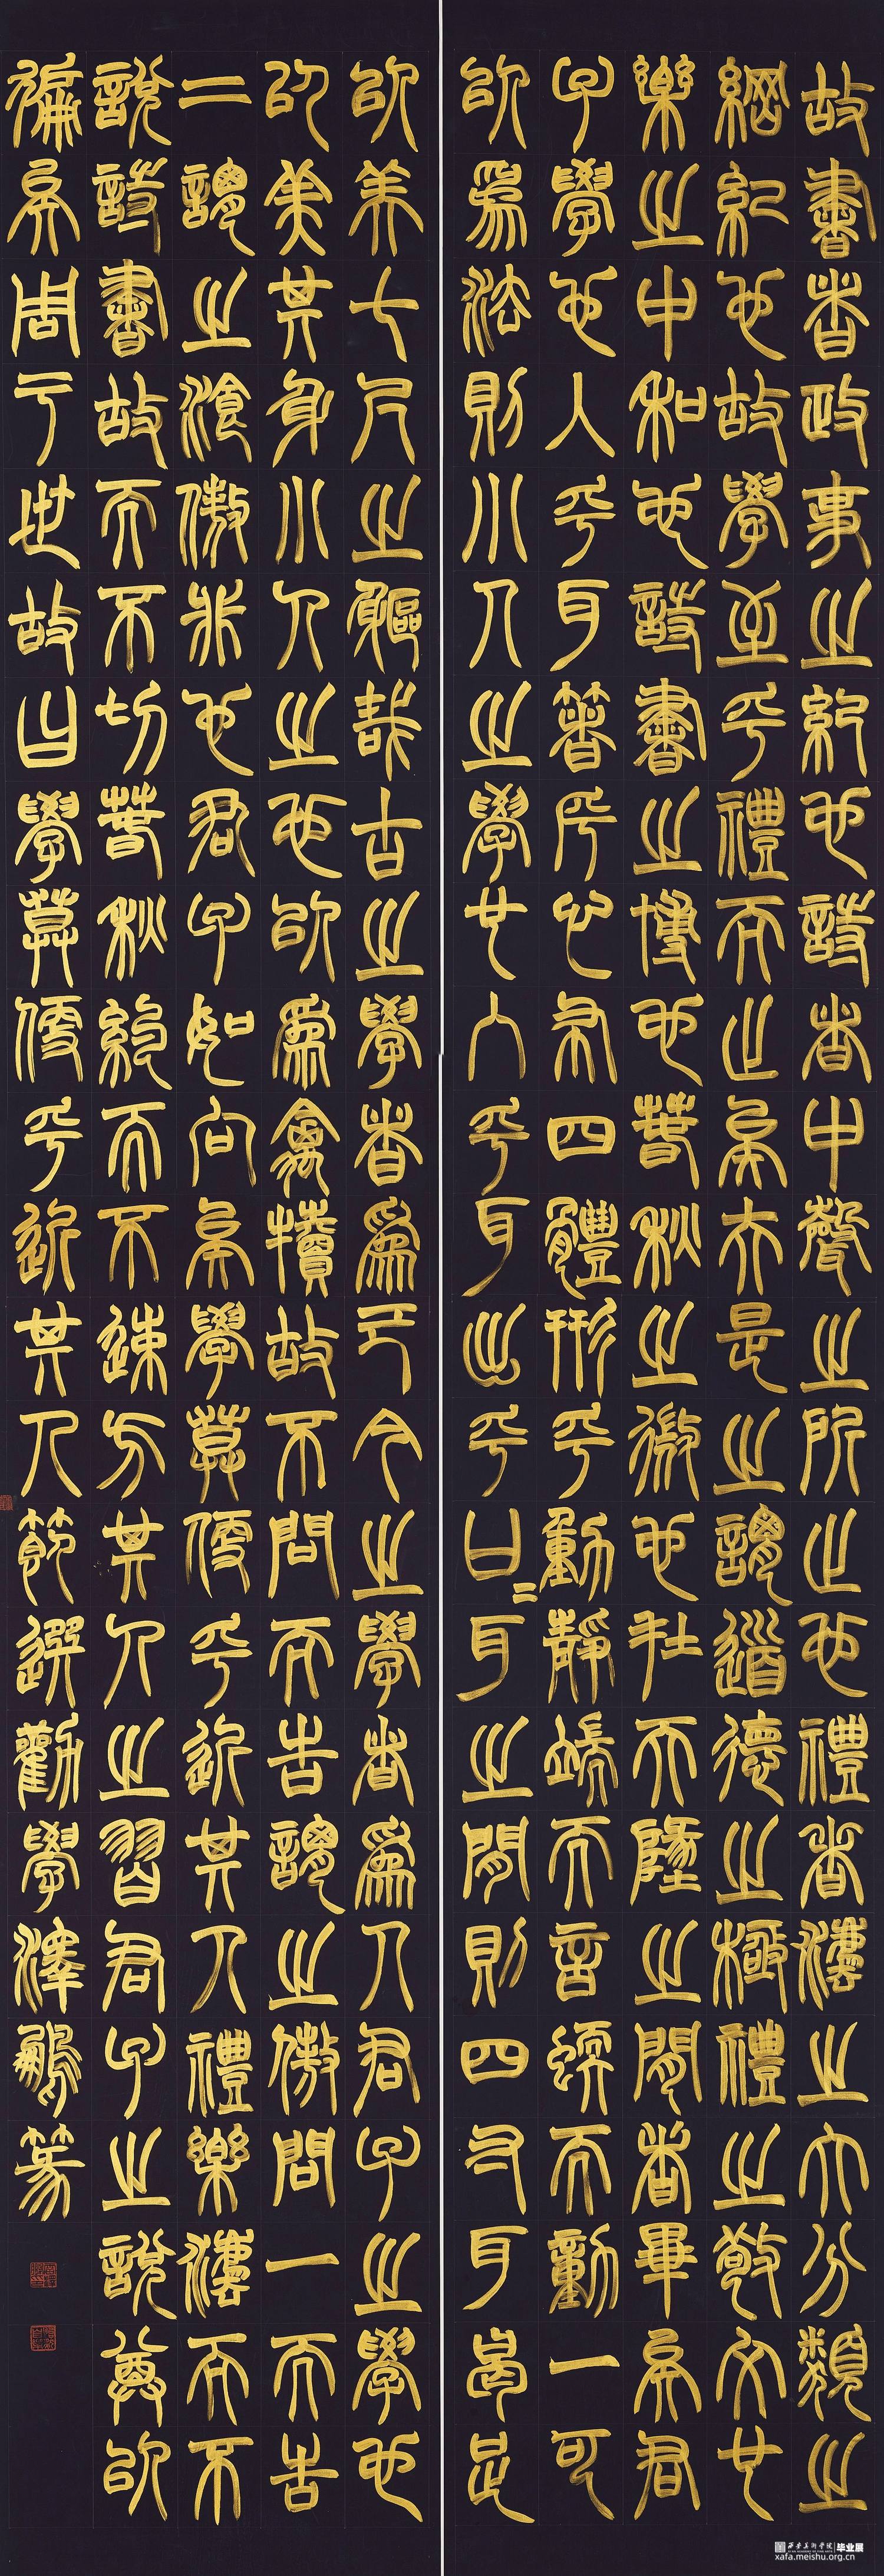 故書者政事之紀也詩者中聲之所止也禮者灋之大分類之
綱紀也故學至乎禮而止矣夫是之謂道德之極禮之敬文也
樂之中和也詩書之博也春秋之微也在天地之間者畢矣君
子學也入乎耳箸乎心布四體形乎動靜端而言蝡而動一可
以為法則小人之學也入乎耳出乎口〻耳之間則四寸耳曷足
以美七尺之軀哉古之學者為己今之學者為人君子之學也
以美其身小人之也以為禽犢故不問而告謂之傲問一而告
二謂之傲非也君子如向矣學莫便乎近其人禮樂灋而不
說詩書故而不切春秋約而不速方其人之習君子之說尊以
徧矣周于世故曰學莫便乎近其人節選勸學澤鵬篆
西安美術學院 毕业展
xafa.meishu.org.cn